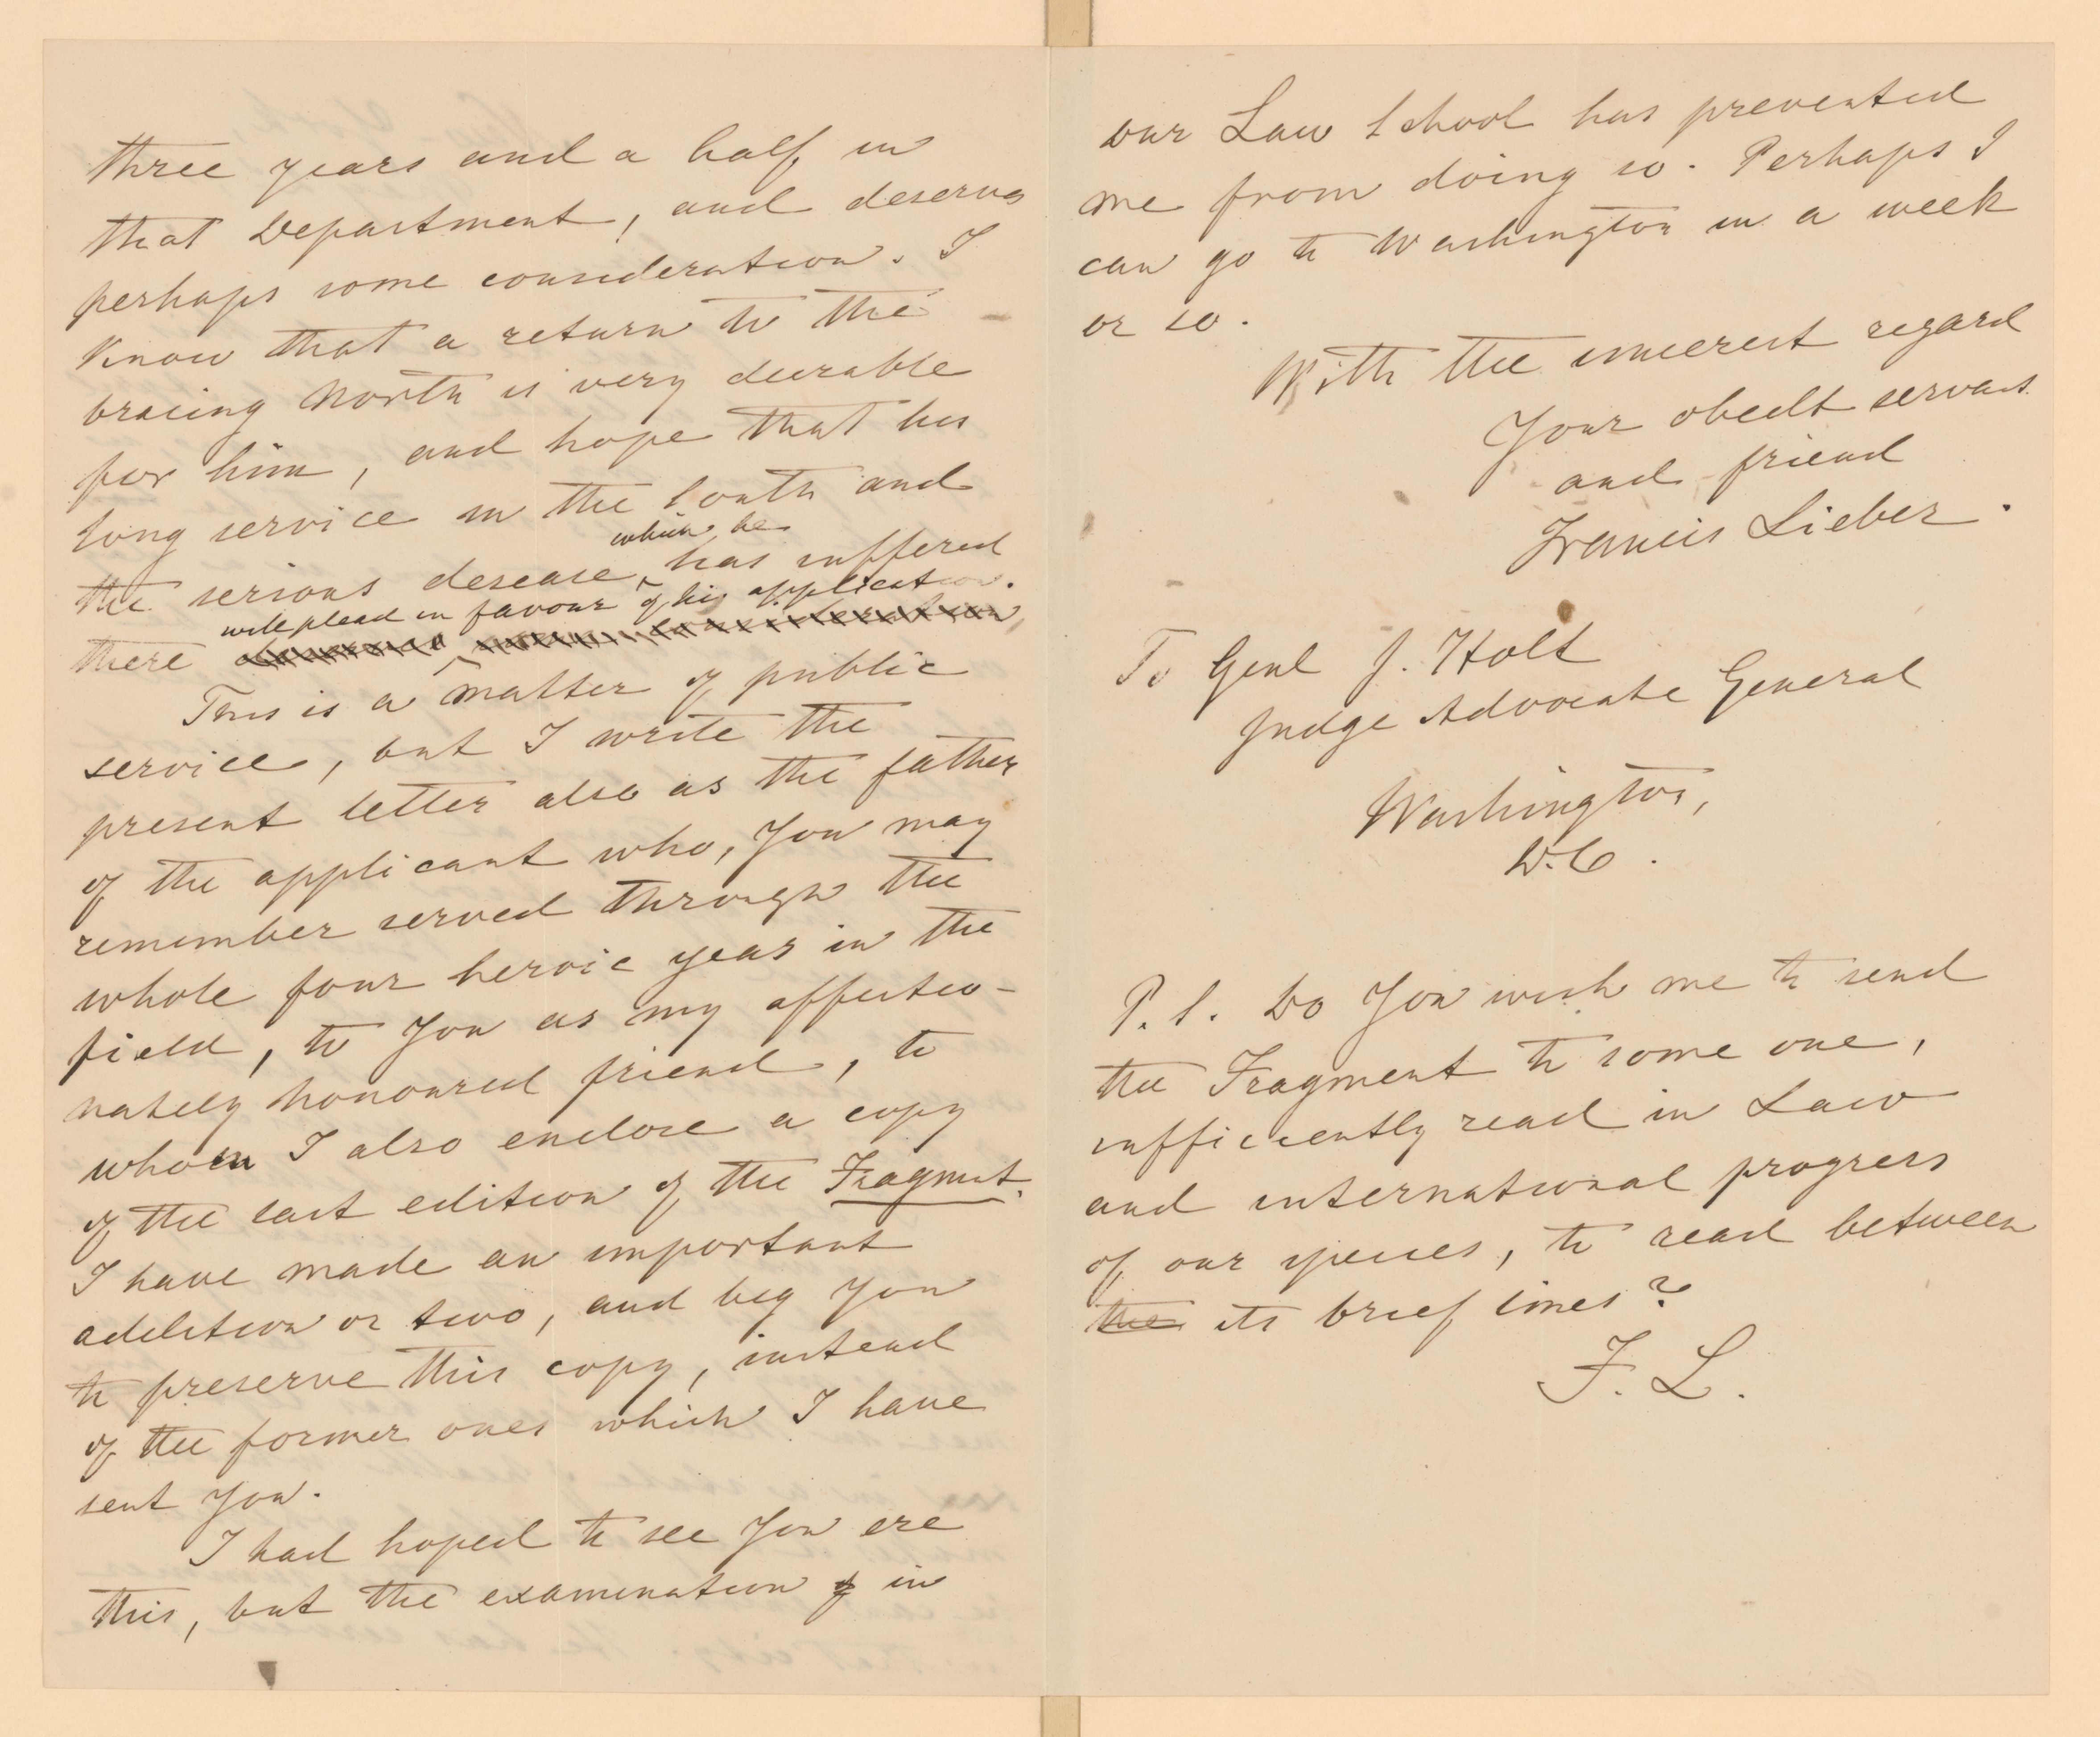 three years and a half in
that Department, and deserves
perhaps some consideration. I
know that a return to the
bracing North is very desirable
for him, and hope that his
long service in the South and
which he
the serious desease, has suffered
will plead in favour of his application.
there
This is a matter of public
service, but I write the
present letter also as the father
of the applicant who, You may
remember served through the
whole four heroic years in the
field, to You as my affectio-
nately honoured friend, to
whom I also enclose a copy
of the last edition of the Fragment.
I have made an important
addition or two, and beg You
to preserve this copy, instead
of the former ones which I have
sent You.
I had hoped to see You ere
this, but the examination of in
our Law School has prevented
me from doing so. Perhaps I
can go to Washington in a week
or so.
With the sincerest regard
Your obedt servant
and friend
Francis Lieber.
To Genl J. Holt
Judge Advocate General
Washington,
D.C.
P. S. Do You wish me to send
the Fragment to some one,
sufficiently read in Law
and international progress
of our species, to read between
the its brief lines?
F. L.